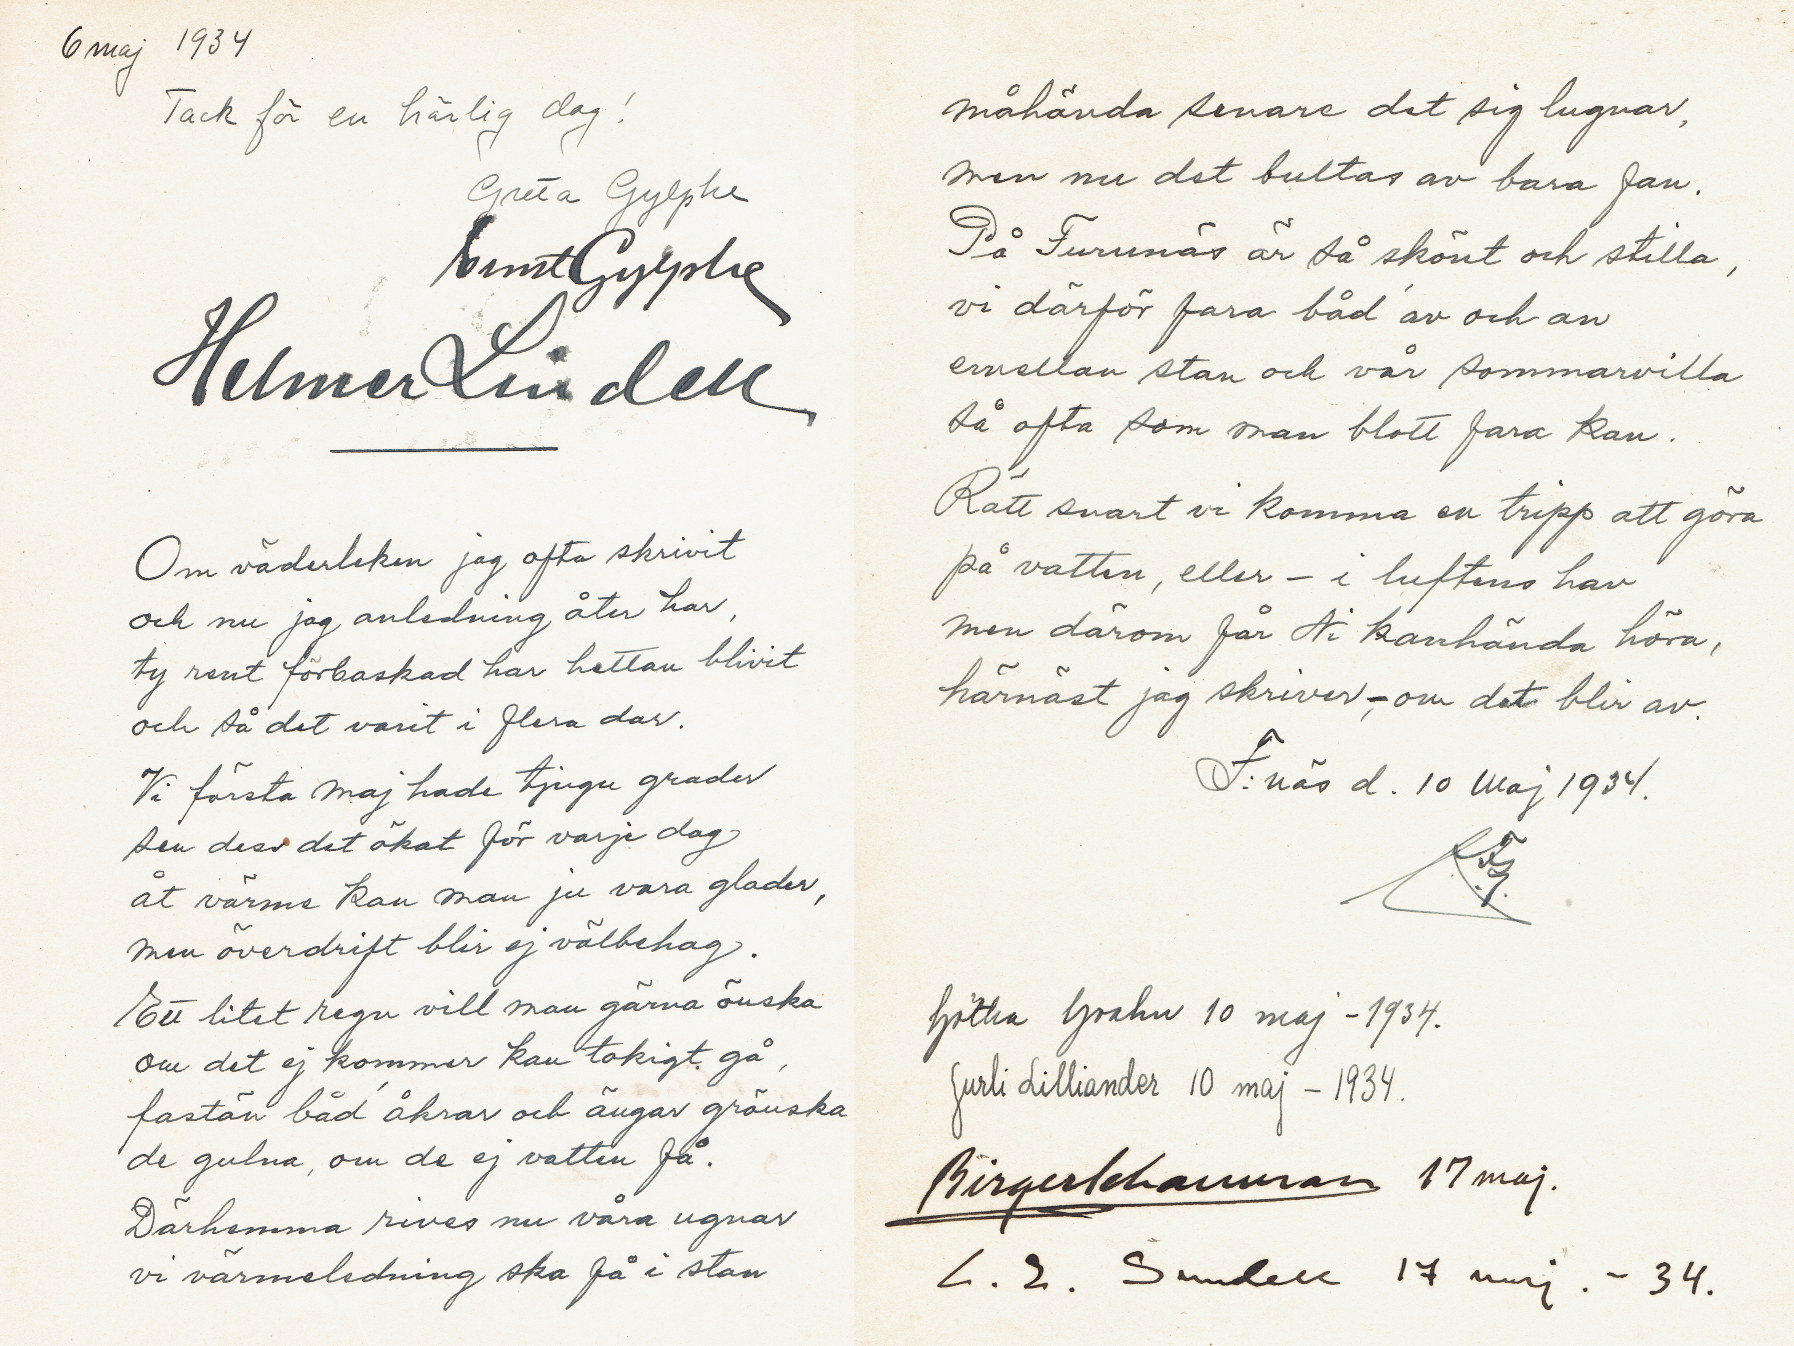 6 maj 1934
Tack för en härlig dag!
Greta Gylphe
Gylphe
Helmer Lindell
Om väderleken jag ofta skrivit
och nu jag anledning åter har,
ty rent förbaskad har hettan blivit
och så det varit i flera dar.
Vi första maj hade tjugu grader
sen dess det ökat för varje dag
åt värme kan man ju vara glader,
men överdrift blir ej välbehag.
Ett litet regn vill man gärna önska
om det ej kommer kan tokigt gå,
fastän båd' åkrar och ängar grönska
de gulna, om de ej vatten få.
Därhemma rives nu våra ugnar
vi värmeledning ska få i stan
måhända senare det sig lugnar,
men nu det bultas av bara fan.
På Furunäs är så skönt och stilla,
vi därför fara båd' av och an
emellan stan och vår sommarvilla
så ofta som man blott fara kan.
Rätt snart vi komma en tripp att göra
på vatten, eller – i luftens hav
men därom får Ni kanhända höra,
härnäst jag skriver, – om det blir av.
F:näs d. 10 Maj 1934.
Götha Grahn 10 maj – 1934.
Gurli Lilliander 10 maj – 1934.
Birger Schauman 17 maj.
L. E. Sundell 17 maj. – 34.